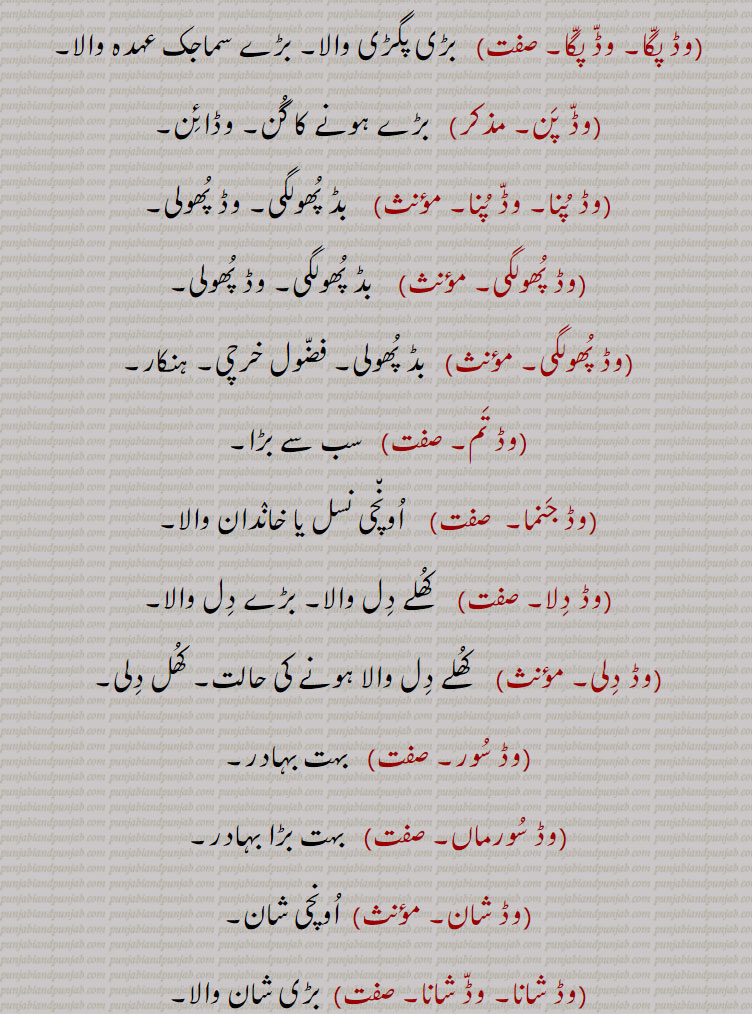 (وڈ پگّا۔ وڈّ پگّا۔ صفت) بڑی پگڑی والا۔ بڑے سماجک عہدہ والا۔
(وڈّ پَن۔ مذکر) بڑے ہونے کا گُن۔ وڈائِن۔
(وڈ پُنا۔ وڈّ پُنا۔ مؤنث) بڈ پُھولگی۔ وڈ پُھولی۔
(وڈ پُھولگی۔ مؤنث) بڈ پُھولگی۔ وڈ پُھولی۔
(وڈ پُھولگی۔ مؤنث) بڈ پُھولی۔ فضّول خرچی۔ ہنکار۔
(وڈ تَم۔ صفت) سب سے بڑا۔
(وڈ جَنما۔ صفت) اُونّچی نسل یا خاندان والا۔
(وڈ دِلا۔ صفت) کُھلے دِل والا۔ بڑے دِل والا۔
(وڈ دِلی۔ مؤنث) کُھلے دِل والا ہونے کی حالت۔ کُھل دِلی۔
(وڈ سُور۔ صفت) بہت بہادر۔
(وڈ سُورماں۔ صفت) بہت بڑا بہادر۔
(وڈ شان۔ مؤنث) اُونچی شان۔
(وڈ شانا۔ وڈّ شانا۔ صفت) بڑی شان والا۔